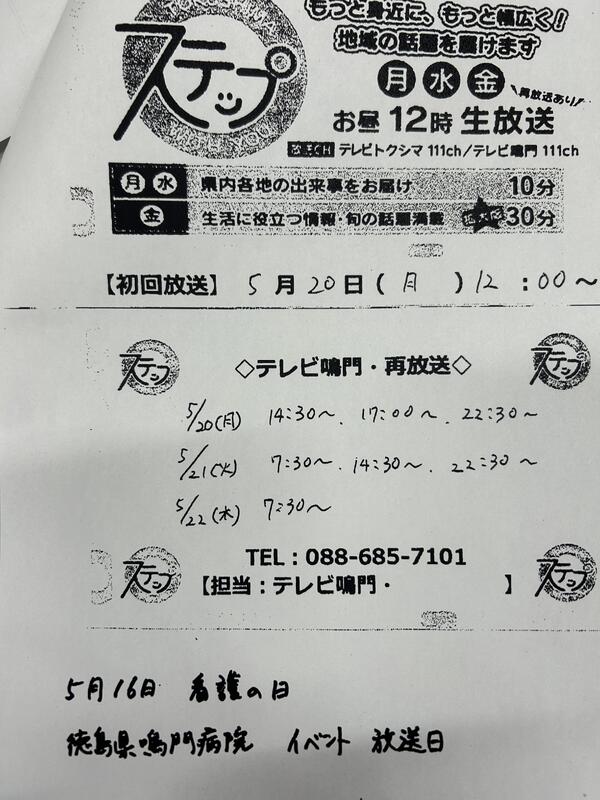 ステップ
もっと身近に、もっと幅広く!
地域の話題を届けます
月 水 金
再放送あり!
お昼12時 生放送
放送CH テレビトクシマ 111ch/テレビ鳴門 111ch
月 水 県内各地の出来事をお届け 10分
金 生活に役立つ情報・旬の話題満載 拡大版 30分
【初回放送】 5月20日(月)12:00~
ステップ ◇テレビ鳴門・再放送◇ ステップ
5/20(月) 14:30~、17:00~、22:30~
5/21(火) 7:30~、14:30~、22:30~
5/22(木) 7:30~
TEL:088-685-7101
ステップ 【担当:テレビ鳴門・ 】 ステップ
5月16日 看護の日
徳島県鳴門病院 イベント 放送日